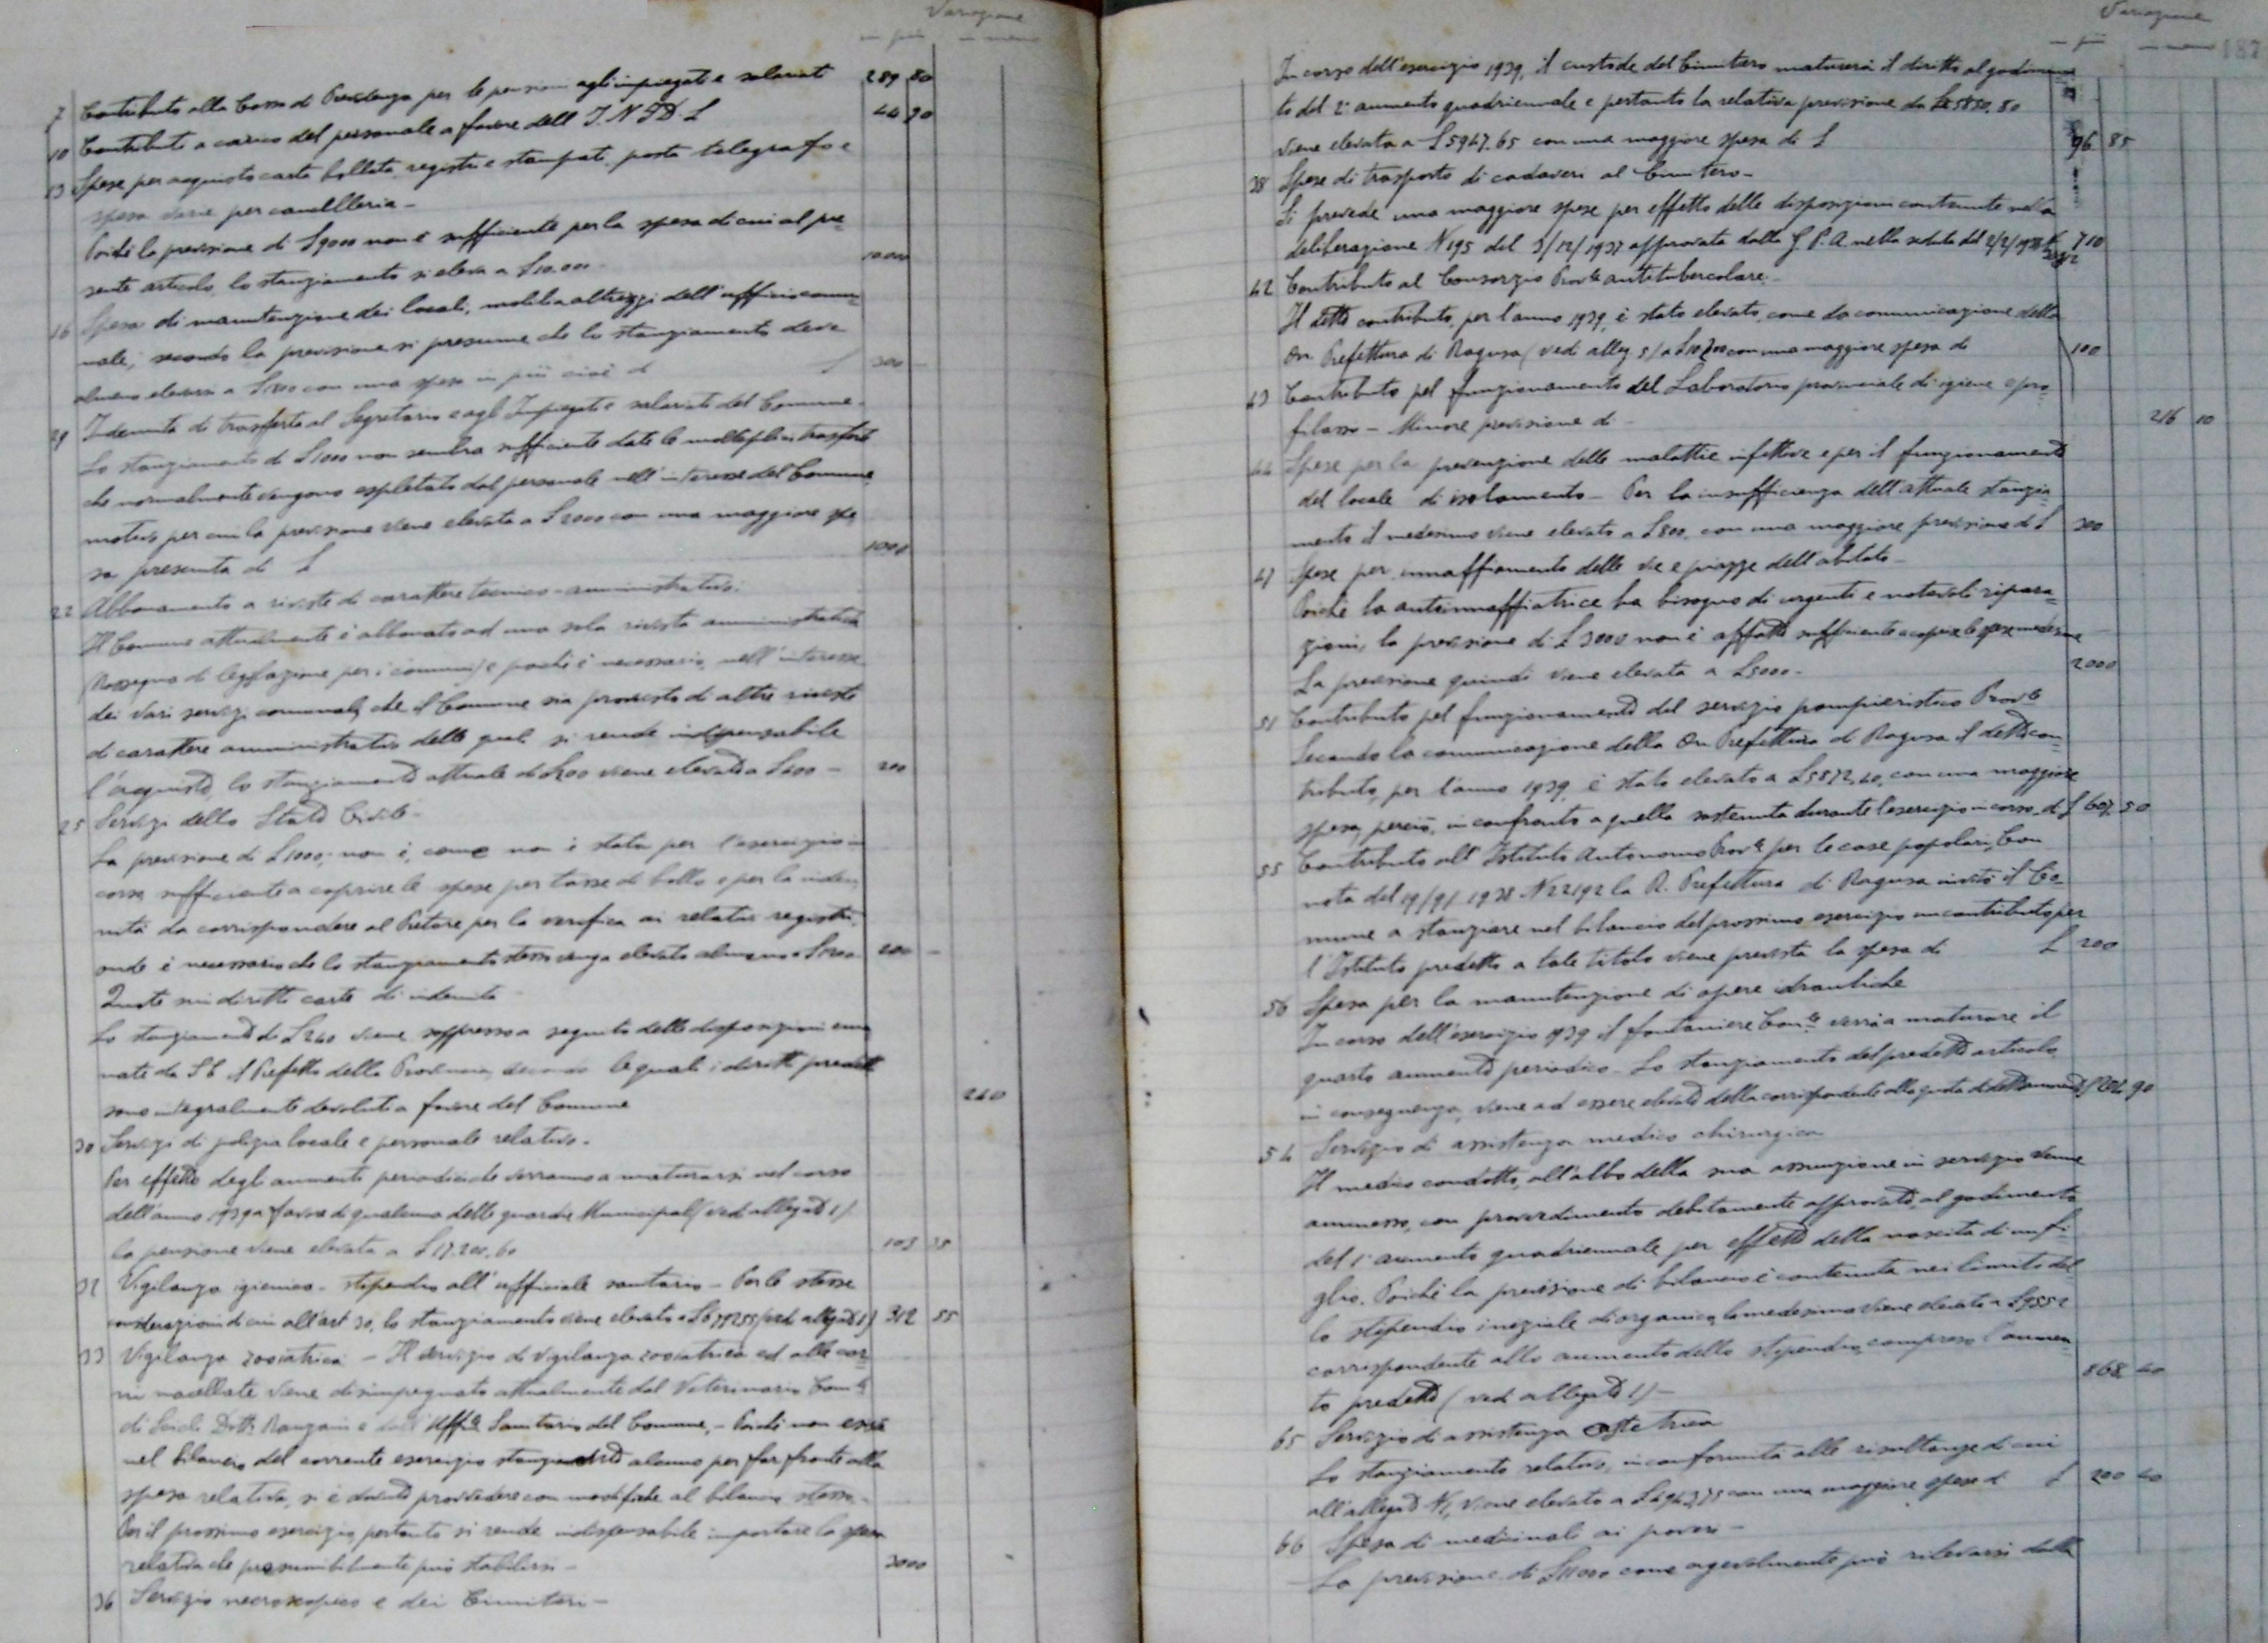 Variazione
in più in meno
7 Contributo alla Cassa di Previdenza per le pensioni agli impiegati e salariati 289 80
10 Contributo a carico del personale a favore dell' I.N.F.D.L 44 90
13 Spese per acquisto carta bollata, registri e stampati, posta telegrafo e
spese varie per cancelleria -
Poiché la previsione di £ 9000 non è sufficiente per la spesa di cui al pre=
sente articolo, lo stanziamento si eleva a £ 10.000 10000
16 Spesa di manutenzione dei locali, mobili attrezzi dell'ufficio comu=
nale, secondo la previsione si presume che lo stanziamento deve
almeno elevarsi a con una spesa in più cioè di £ 300 -
Indennità di trasferta al Segretario e agli Impiegati e salariati del Comune.
Lo stanziamento di £ 1000 non sembra sufficiente date le molteplici trasferte
che normalmente vengono espletate dal personale nell'interesse del Comune
motivo per cui la previsione viene elevata a £ 2000 con una maggiore spe
sa presunta di £ 1000
22 Abbonamento a riviste di carattere tecnico-amministrativo.
Il Comune attualmente è abbonato ad una sola rivista amministrativa
(Rassegna di legislazione per i comuni) e poiché è necessario, nell'interesse
dei vari servizi comunali, che il Comune sia provvisto di altre riviste
di carattere amministrativo delle quali si rende indispensabile
l'acquisto, lo stanziamento attuale di £ 200 viene elevato a £ 400 - 200
25 Servizi dello Stato Civile -
La previsione di £ 1000, non è, come non è stata per l'esercizio in
corso sufficiente a coprire le spese per tasse di bollo e per la inden
nità da corrispondere al Pretore per la verifica ai relativi registri.
onde è necessario che lo stanziamento stesso venga elevato almeno a £ 1200 200 -
Quote sui diritti carte di identità -
Lo stanziamento di £ 240 viene soppresso a seguito delle disposizioni ema
nate da S.E. il Prefetto della Provincia, secondo le quali i diritti predetti
sono integralmente devoluti a favore del Comune 240
30 Servizi di polizia locale e personale relativo.
Per effetto degli aumenti periodici che verranno a maturarsi nel corso
dell'anno 1939 a favore di qualcuna delle guardie Municipali (vedi allegato 1)
la pensione viene elevata a £ 17.200,60 103 35
32 Vigilanza igienica - stipendio all'ufficiale sanitario - Per le stesse
considerazioni di cui all'art. 30, lo stanziamento viene elevato a £ 6792,55 (vedi allegato 1) 312 55
33 Vigilanza zooiatrica - Il servizio di vigilanza zooiatrica ed alle car=
ni macellate viene disimpegnato attualmente dal Veterinario Com.le
di Scicli Dott. e dall'Uff.le Sanitario del Comune. - Poiché non esiste
nel bilancio del corrente esercizio stanziamento alcuno per far fronte alla
spesa relativa, si è dovuto provvedere con modifiche al bilancio stesso -
Per il prossimo esercizio, pertanto si rende indispensabile importare la spesa
relativa che presumibilmente può stabilirsi - 3000
36 Servizio necroscopico e dei Cimiteri -
Variazione
in più in meno 187
In corso dell'esercizio 1939, il custode del Cimitero maturerà il diritto al godimen
to del 2° aumento quadriennale e pertanto la relativa previsione da £ 5850,80
viene elevata a £ 5947,65 con una maggiore spesa di £ 96 85
38 Spese di trasporto di cadaveri al Cimitero -
Si prevede una maggiore spesa per effetto delle disposizioni contenute nella
deliberazione N 195 del 3/12/1937 approvata dalla G.P.A. nella seduta del 2/2/1938 710
42 Contributo al Consorzio Prov.le antitubercolare. -
Il detto contributo, per l'anno 1939, è stato elevato, come da comunicazione della
On. Prefettura di Ragusa (vedi alleg. 5) con una maggiore spesa di 100
43 Contributo pel funzionamento del Laboratorio provinciale di igiene e pro=
filassi - Minore previsione di - 216 10
44 Spese per la prevenzione delle malattie infettive e per il funzionamento
del locale di isolamento - Per la insufficienza dell'attuale stanzia=
mento il medesimo viene elevato a £ 800, con una maggiore previsione di £ 300
47 Spese per innaffiamento delle vie e piazze dell'abitato -
Poiché la autoinnaffiatrice ha bisogno di urgenti e notevoli ripara=
zioni, la previsione di £ 3000 non è affatto sufficiente a coprire le spese medesime
La previsione quindi viene elevata a £ 5000 - 2000
51 Contributo pel funzionamento del servizio pompieristico Prov.le
Secondo la comunicazione della On. Prefettura di Ragusa il detto con=
tributo, per l'anno 1939, è stato elevato a £ 5572,40, con una maggiore
spesa, perciò, in confronto a quella sostenuta durante l'esercizio in corso, di £ 607,50
55 Contributo all'Istituto Autonomo Prov.le per le case popolari, Con
nota del 19/9/1938 N 22192 la R. Prefettura di Ragusa invitò il Co=
mune a stanziare nel bilancio del prossimo esercizio un contributo per
l'Istituto predetto a tale titolo viene prevista la spesa di £ 200
56 Spesa per la manutenzione di opere idrauliche
In corso dell'esercizio 1939 il fontaniere Com.le verrà a maturare il
quarto aumento periodico - Lo stanziamento del predetto articolo
in conseguenza, viene ad essere elevato della corrispondente alla quota di detto aumento £ 204,90
54 Servizio di assistenza medico chirurgica
Il medico condotto, all'albo della sua assunzione in servizio venne
ammesso, con provvedimento debitamente approvato, al godimento
del 1° aumento quadriennale per effetto della nascita di un fi=
glio. Poiché la previsione di bilancio è contenuta nei limiti del
lo stipendio iniziale di organico, la medesima viene elevata a £ 9552
corrispondente allo aumento dello stipendio, compreso l'aumen
to predetto (vedi allegato 1) - 868 40
65 Servizio di assistenza ostetrica
Lo stanziamento relativo, in conformità alle risultanze di cui
all'allegato N 1, viene elevato a £ 4943,75 con una maggiore spesa di £ 200 40
66 Spesa di medicinali ai poveri -
La previsione di £ 11000 come agevolmente può rilevarsi dalla